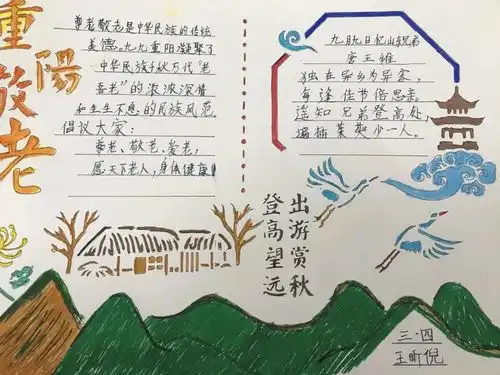 重陽
敬老
尊老敬老是中华民族的传统
美德。九九重阳凝聚了
中华民族千秋万代“老
吾老”的浓浓深情
和生生不息的民族风范。
倡议大家：
尊老、敬老、爱老，
愿天下老人，身体健康！
九月九日忆山东兄弟
唐 王维
独在异乡为异客，
每逢佳节倍思亲。
遥知兄弟登高处，
遍插茱萸少一人。
出游赏秋
登高望远
三·四
王昕倪